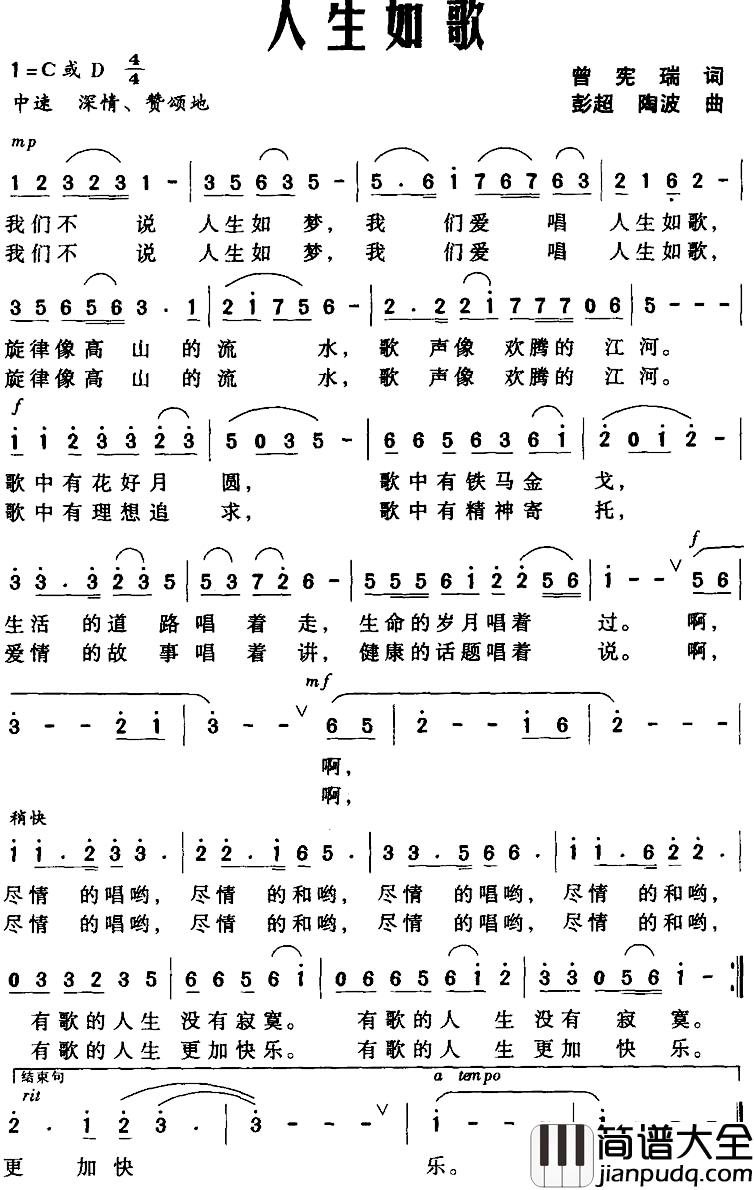 人生如歌
1=C或D 4/4
曾宪瑞 词
中速 深情、赞颂地
彭超 陶波 曲
mp
1 2 3 2 3 1 - | 3 5 6 3 5 - | 5 . 6 i 7 6 7 6 3 | 2 1 6 2 - |
我们不 说 人生如 梦，我 们爱 唱 人生如歌，
我们不 说 人生如 梦，我 们爱 唱 人生如歌，
3 5 6 5 6 3 . 1 | 2 i 7 5 6 - | 2 . 2 2 i 7 7 7 0 6 | 5 - - - |
旋律像高 山 的流 水，歌 声像 欢腾的 江河。
旋律像高 山 的流 水，歌 声像 欢腾的 江河。
f
i i 2 3 3 2 3 | 5 0 3 5 - | 6 6 5 6 3 6 i | 2 0 i 2 - |
歌中有花好月 圆， 歌中有铁马金 戈，
歌中有理想追 求， 歌中有精神寄 托，
f
3 3 . 3 2 3 5 | 5 3 7 2 6 - | 5 5 5 6 i 2 2 5 6 | i - - ∨ 5 6 |
生活 的道 路唱 着 走，生命的岁月唱着 过。 啊，
爱情 的故 事唱 着 讲，健康的话题唱着 说。 啊，
mf
3 - - 2 i | 3 - - ∨ 6 5 | 2 - - i 6 | 2 - - - |
啊，
啊，
稍快
i i . 2 3 3 . | 2 2 . i 6 5 . | 3 3 . 5 6 6 . | i i . 6 2 2 . |
尽情 的唱哟，尽情 的和哟，尽情 的唱哟，尽情 的和哟，
尽情 的唱哟，尽情 的和哟，尽情 的唱哟，尽情 的和哟，
0 3 3 2 3 5 | 6 6 5 6 i | 0 6 6 5 6 i 2 | 3 3 0 5 6 i - :||
有歌的人生 没有寂寞。 有歌的人 生 没有 寂 寞。
有歌的人生 更加快乐。 有歌的人 生 更加 快 乐。
结束句
rit a tempo
2 . i 2 3 . | 3 - - ∨ | i - - - | i
更 加快 乐。
简谱大全
jianpudq.com